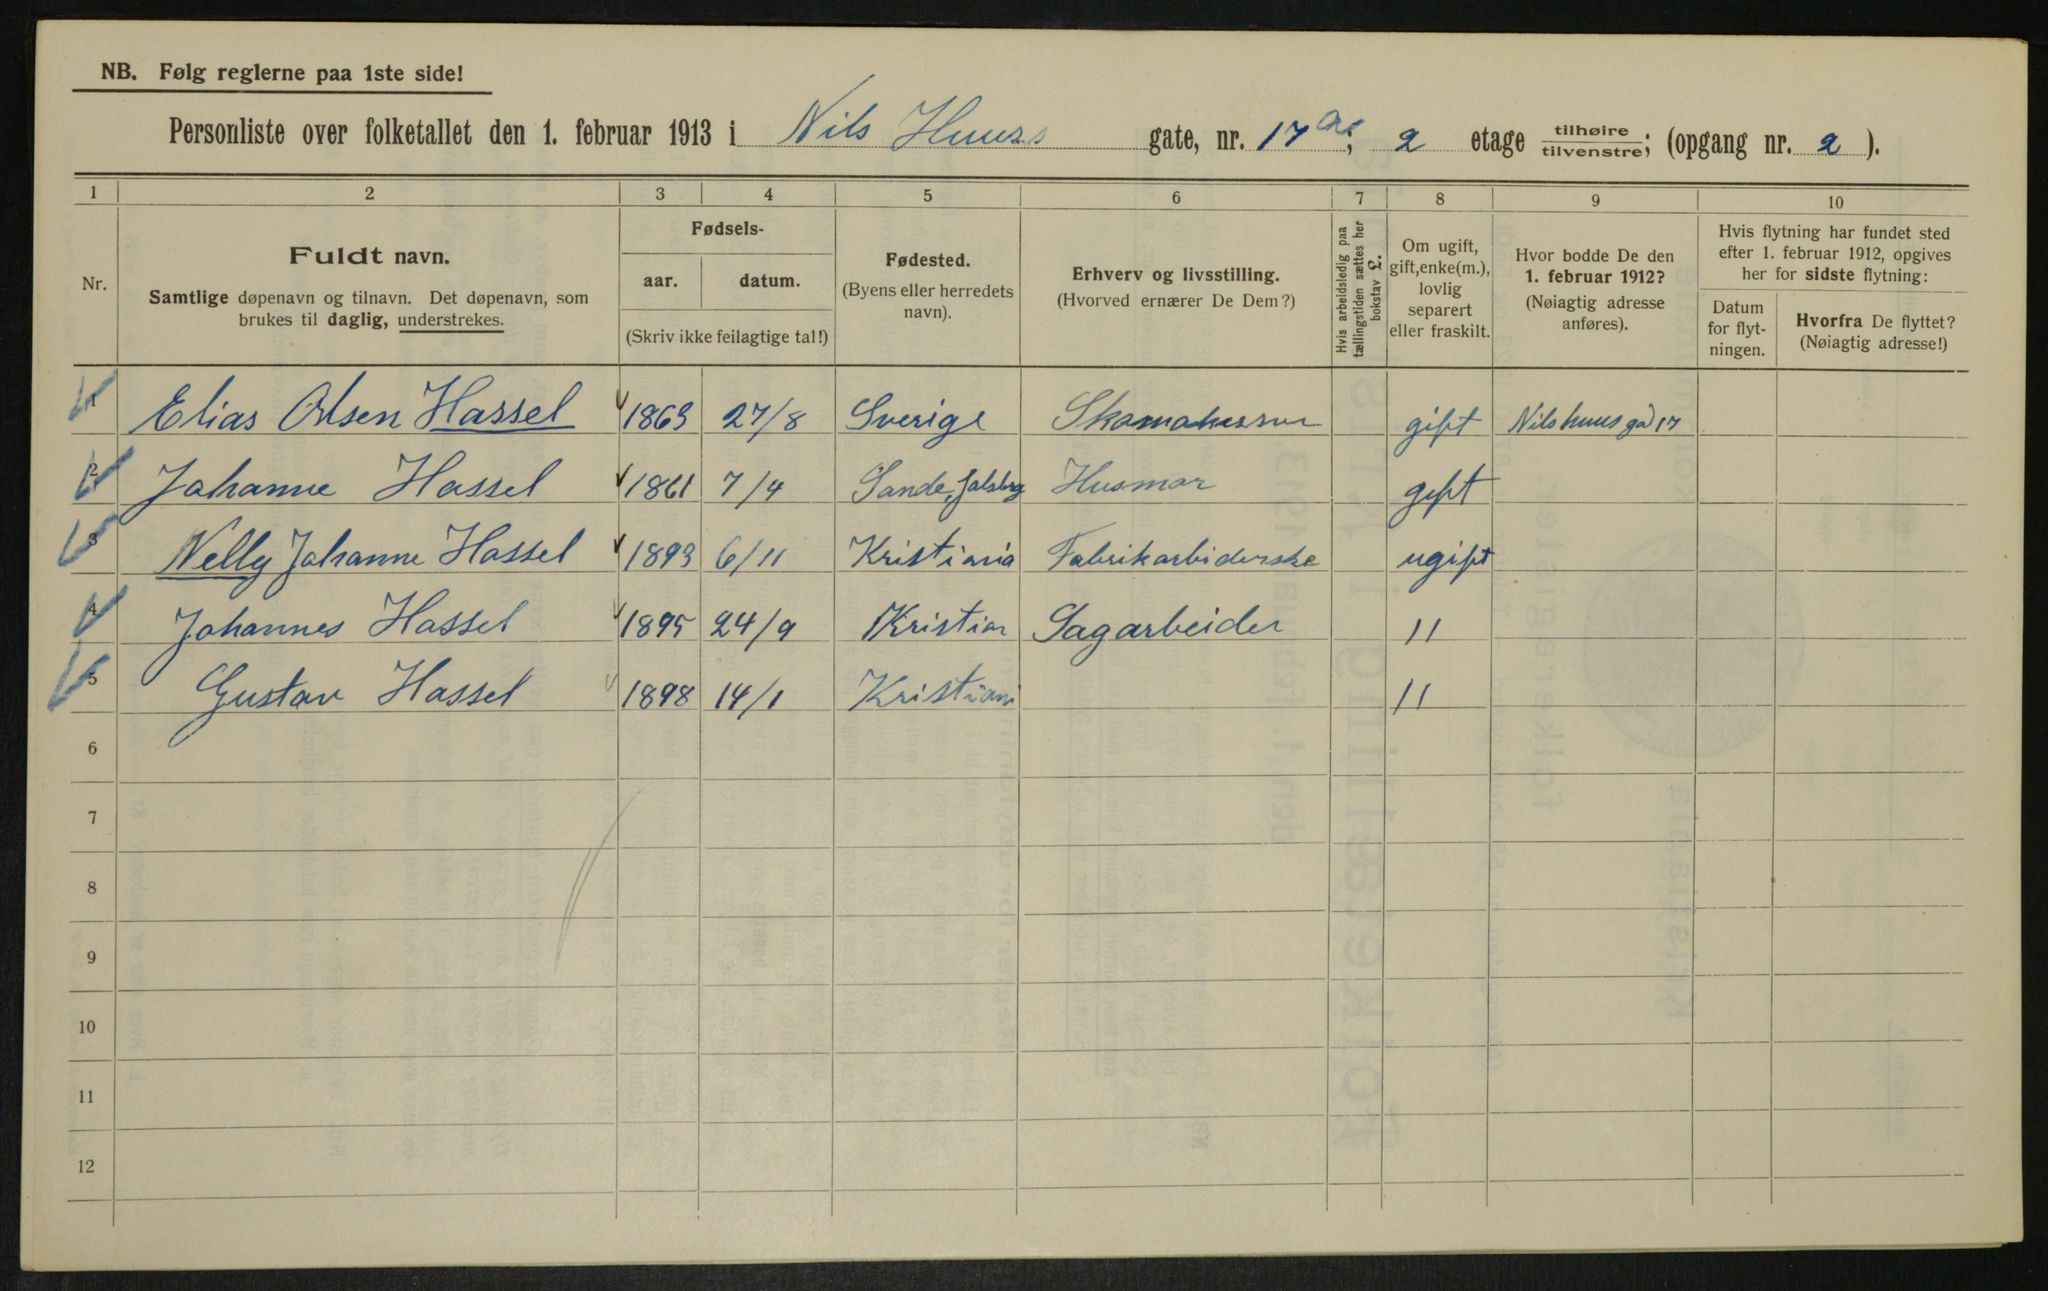 NB. Følg reglerne paa 1ste side!
Personliste over folketallet den 1. februar 1913 i Nils Huuss gate, nr. 17 ; 2 etage tilhøire / tilvenstre; (opgang nr. 2 ).
1 2 3 4 5 6 7 8 9 10
Nr.
Fuldt navn.
Samtlige døpenavn og tilnavn. Det døpenavn, som
brukes til daglig, understrekes.
Fødsels-
aar. datum.
(Skriv ikke feilagtige tal!)
Fødested.
(Byens eller herredets
navn).
Erhverv og livsstilling.
(Hvorved ernærer De Dem?)
Hvis arbeidsledig paa
tællingstiden sættes her
bokstav L.
Om ugift,
gift, enke(m.),
lovlig
separert
eller fraskilt.
Hvor bodde De den
1. februar 1912?
(Nøiagtig adresse
anføres).
Hvis flytning har fundet sted
efter 1. februar 1912, opgives
her for sidste flytning:
Datum
for flyt-
ningen.
Hvorfra De flyttet?
(Nøiagtig adresse!)
1 Elias Olsen Hassel 1863 27/8 Sverige gift Nilshuusgd 17
2 Johanne Hassel 1861 7/4 Sande, Jalsberg Husmor gift
3 Nelly Johanne Hassel 1893 6/11 Kristiania Fabrikarbiderske ugift
4 Johannes Hassel 1895 24/9 Kristian Sagarbeider 11
5 Gustav Hassel 1898 14/1 Kristiani 11
6
7
8
9
10
11
12